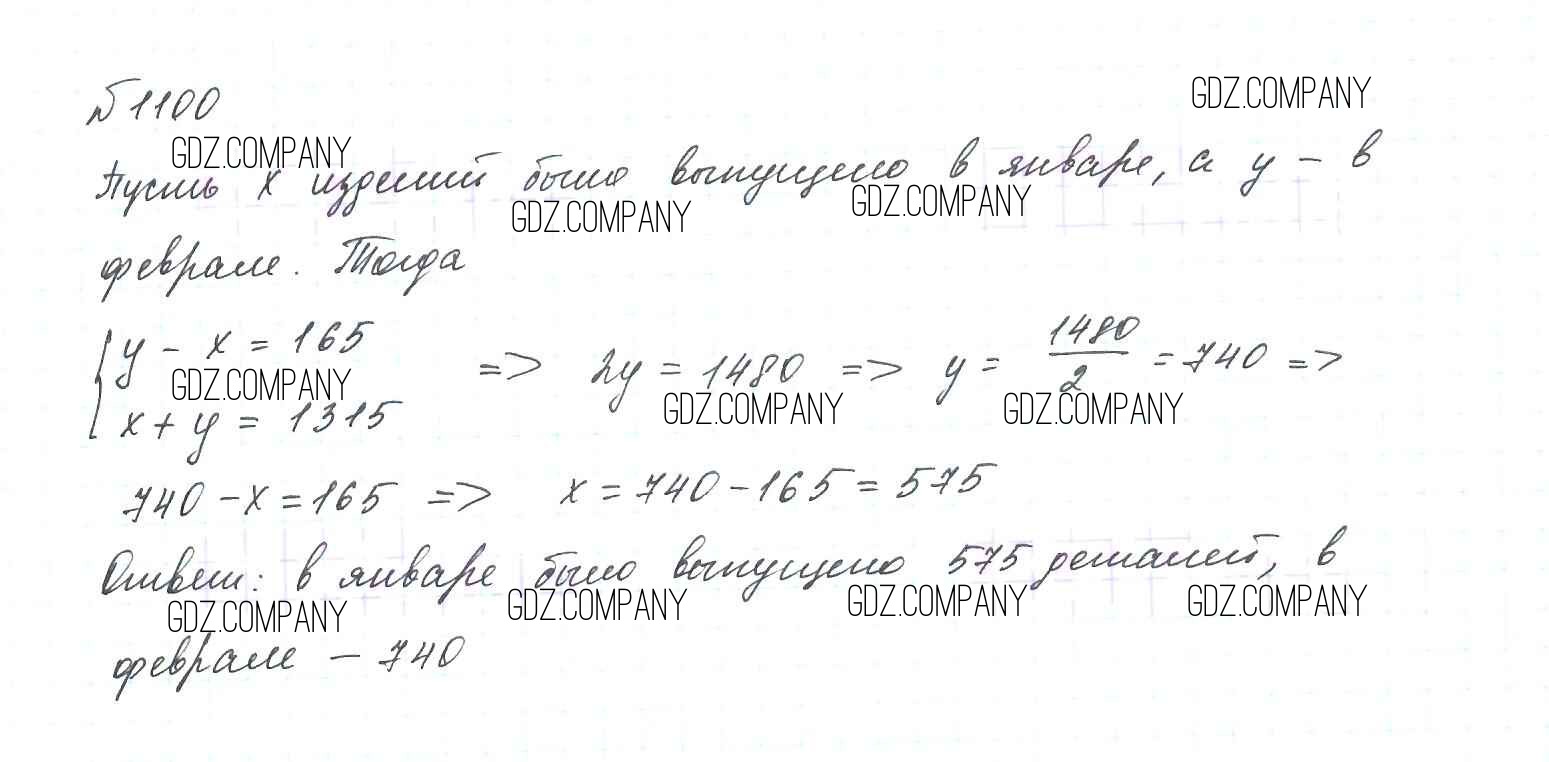 №1100
GDZ.COMPANY
GDZ.COMPANY
Пусть x изделий было выпущено в январе, а y – в
GDZ.COMPANY
GDZ.COMPANY
феврале. Тогда
{ y - x = 165
x + y = 1315 => 2y = 1480 => y = 1480/2 = 740 =>
GDZ.COMPANY
GDZ.COMPANY
GDZ.COMPANY
740 - x = 165 => x = 740 - 165 = 575
Ответ: в январе было выпущено 575 деталей, в
GDZ.COMPANY
GDZ.COMPANY
GDZ.COMPANY
GDZ.COMPANY
феврале – 740